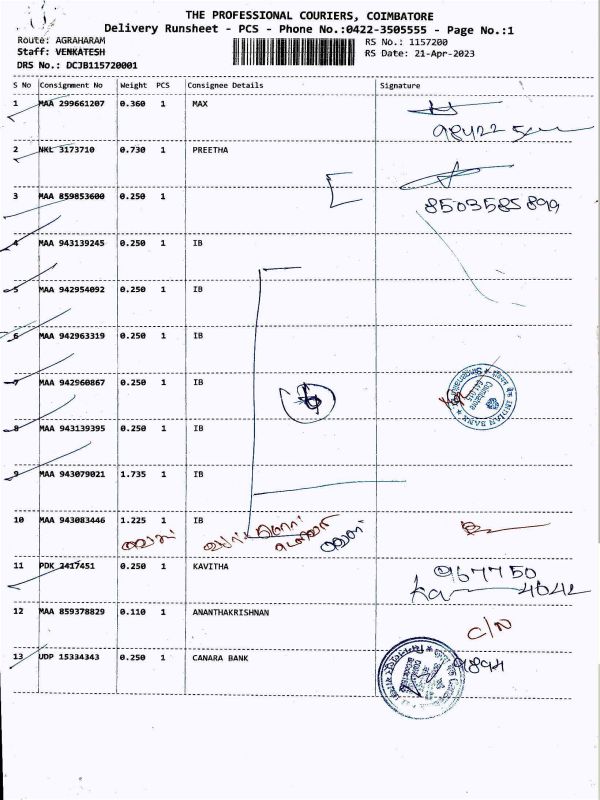 THE PROFESSIONAL COURIERS, COIMBATORE
Delivery Runsheet - PCS - Phone No.:0422-3505555 - Page No.:1
Route: AGRAHARAM
Staff: VENKATESH
DRS No.: DCJB115720001
RS No.: 1157200
RS Date: 21-Apr-2023
S No Consignment No Weight PCS Consignee Details Signature
1 MAA 299661207 0.360 1 MAX
98422
2 NKL 3173710 0.730 1 PREETHA
3 MAA 859853600 0.250 1
8503585899
4 MAA 943139245 0.250 1 IB
5 MAA 942954092 0.250 1 IB
6 MAA 942963319 0.250 1 IB
7 MAA 942960867 0.250 1 IB
INDIAN BANK
Coimbatore
8 MAA 943139395 0.250 1 IB
9 MAA 943079021 1.735 1 IB
10 MAA 943083446 1.225 1 IB
11 PDK 2417451 0.250 1 KAVITHA
967750
4042
12 MAA 859378829 0.110 1 ANANTHAKRISHNAN
C/N
13 UDP 15334343 0.250 1 CANARA BANK
9894